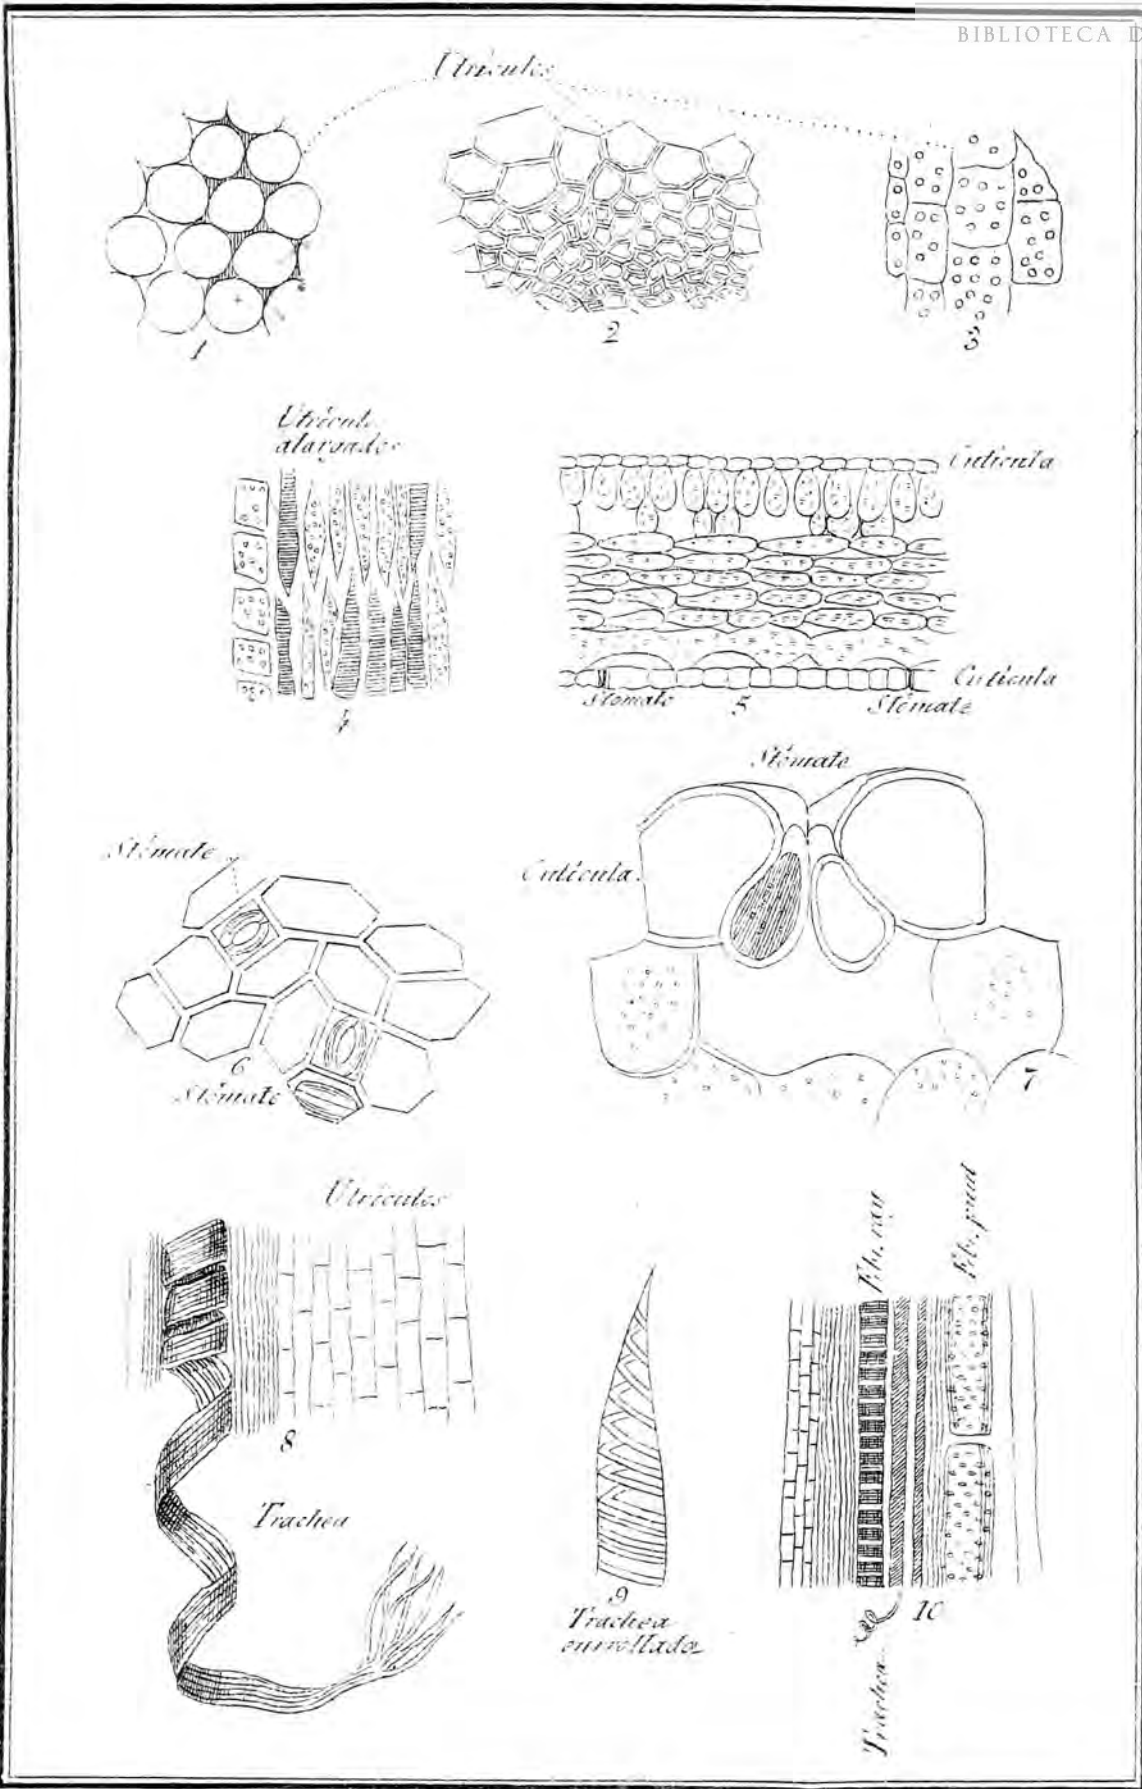 BIBLIOTECA D
Utrícules
1
2
3
Utrícul.
alargados
4
Cuticula
Cuticula
Stómate
5
Stómate
Stómate
Stómate
6
Stómate
Cuticula.
7
Utrícules
8
Trachea
9
Trachea
enrrollada
Fib. ray
Fib. punt
10
Trachea